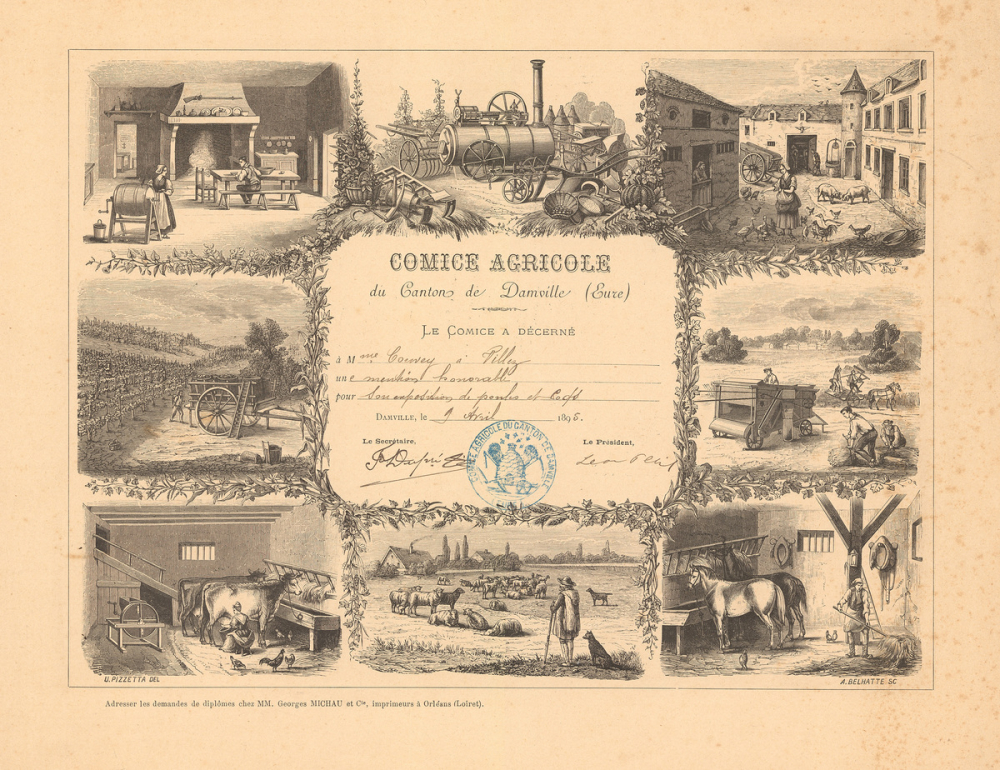 COMICE AGRICOLE
du Canton de Damville (Eure)
LE COMICE A DÉCERNÉ
à Mme à
une mention honorable
pour son exposition de poules et Coqs
DAMVILLE, le 9 Avril 1895.
Le Secrétaire, Le Président,
COMICE AGRICOLE DU CANTON DE DAMVILLE
U. PIZZETTA DEL A. BELHATTE SC
Adresser les demandes de diplômes chez MM. Georges MICHAU et Cie, imprimeurs à Orléans (Loiret).